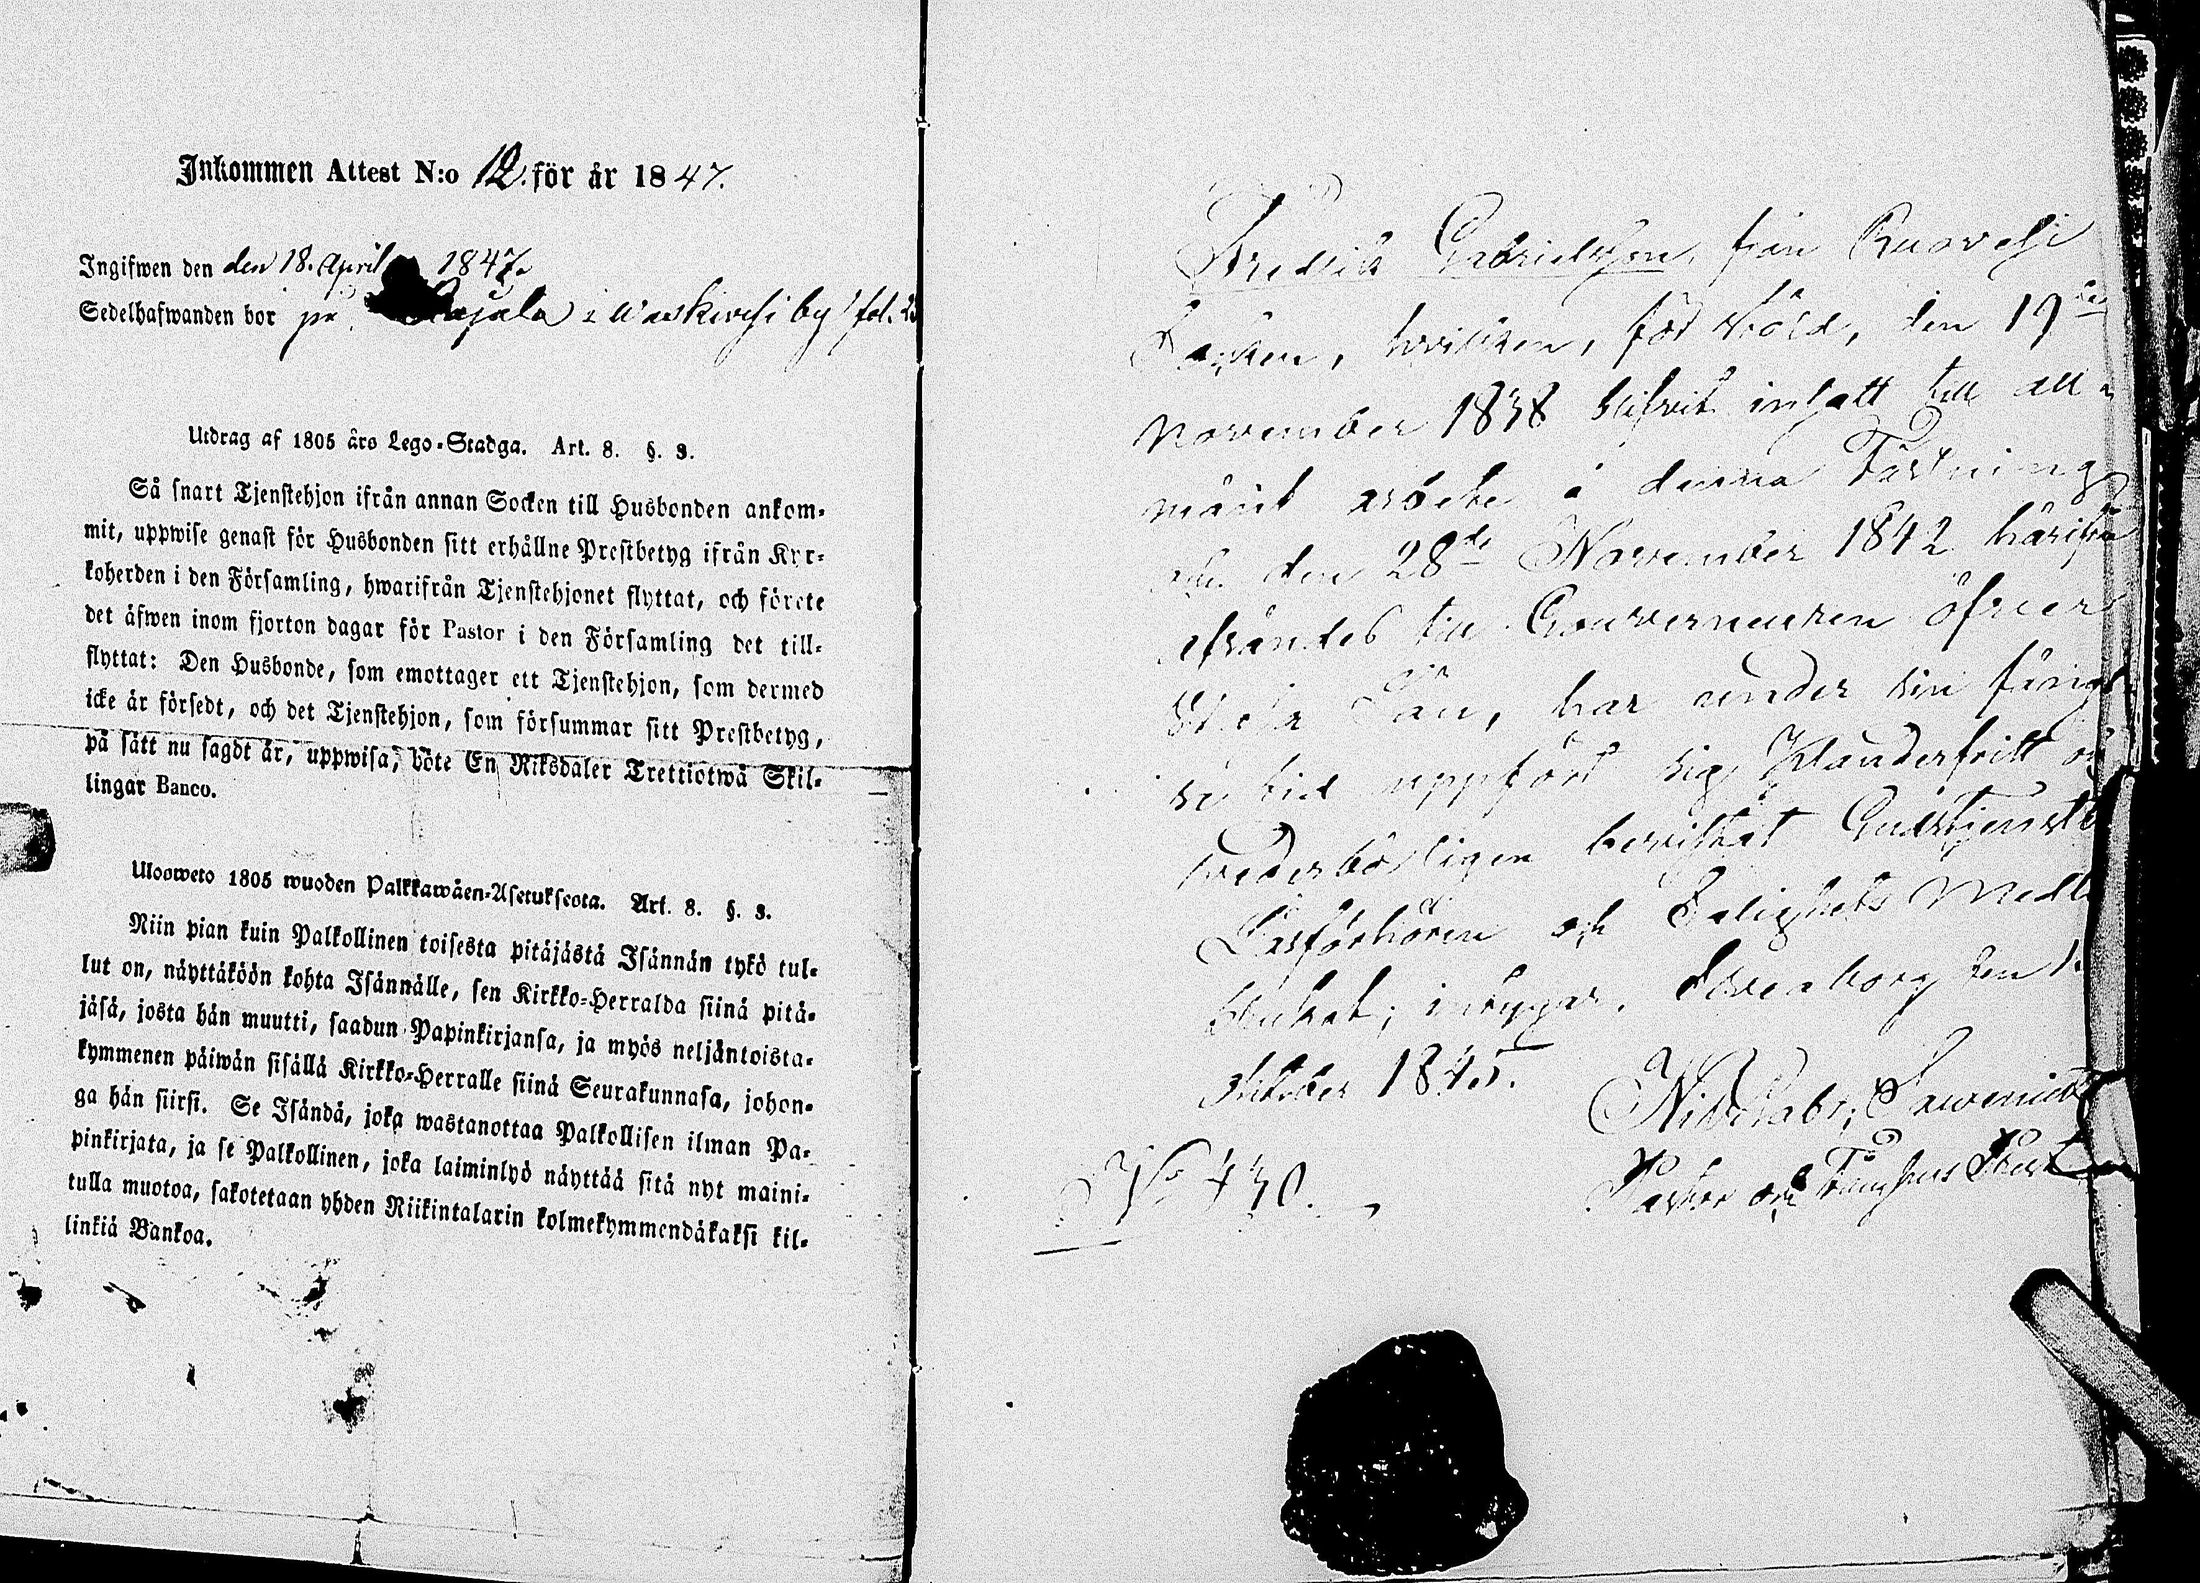 Inkommen Attest N:o 12. för år 1847.
Ingifwen den den 18. April 1847.
Sedelhafwanden bor på ajala i Waskivesi by fol.
Utdrag af 1805 års Lego-Stadga. Art. 8. §. 3.
Så snart Tjenstehjon ifrån annan Socken till Husbonden ankom-
mit, uppwise genast för Husbonden sitt erhållne Prestbetyg ifrån Kyr-
koherden i den Församling, hwarifrån Tjenstehjonet flyttat, och förete
det äfwen inom fjorton dagar för Pastor i den Församling det till-
flyttat: Den Husbonde, som emottager ett Tjenstehjon, som dermed
icke är försedt, och det Tjenstehjon, som försummar sitt Prestbetyg,
på sätt nu sagdt är, uppwisa, böte En Riksdaler Trettiotwå Skil-
lingar Banco.
Ulosweto 1805 wuoden Palkkawäen-Asetuksesta. Art. 8. §. 3.
Niin pian kuin Palkollinen toisesta pitäjästä Isännän tykö tul-
lut on, näyttäköön kohta Isännälle, sen Kirkko-Herralda siinä pitä-
jäsä, josta hän muutti, saadun Papinkirjansa, ja myös neljäntoista-
kymmenen päiwän sisällä Kirkko-Herralle siinä Seurakunnasa, johon-
ga hän siirsi. Se Isändä, joka wastanottaa Palkollisen ilman Pa-
pinkirjata, ja se Palkollinen, joka laiminlyö näyttää sitä nyt maini-
tulla muotoa, sakotetaan yhden Riikintalarin kolmekymmendäkaksi kil-
linkiä Bankoa.
Fredrik Gabrielsson, från Ruovesi
Socken, hvilken, för stöld, den 19de
November 1838 blifvit insatt till all-
mänt arbete å denna Fästning
den 28de November 1842 härifrån
afsändes till Gouverneuren öfver
Län, har under sin fånge-
tid uppfört sig klanderfritt
vederbörligen bevistat Gudstjenste
Läsförhören och Salighets Medlen
brukat; intygar. Sveaborg den
October 1845.
Pastor och
No 430.